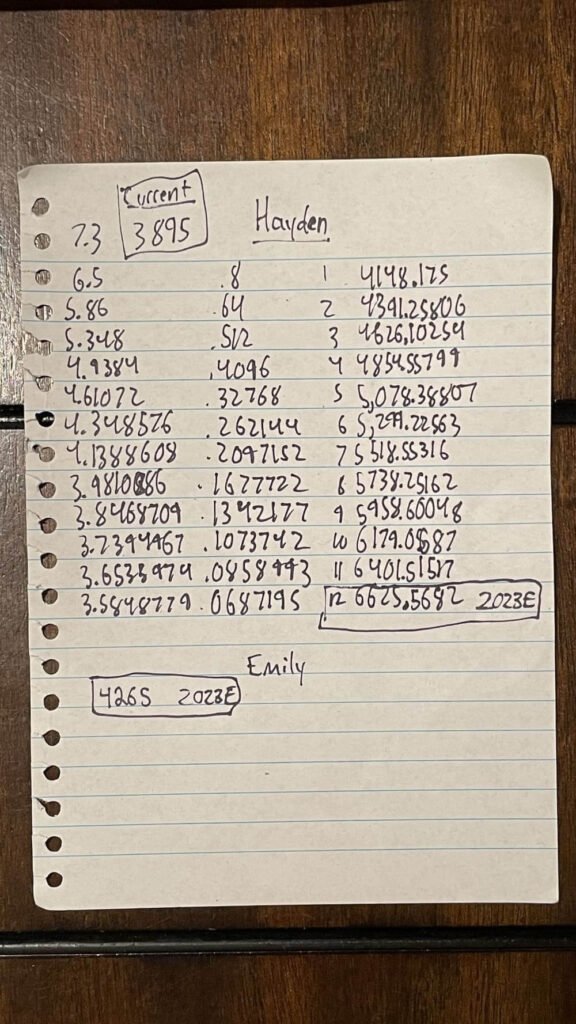 Current
7.3 3895 Hayden
6.5 .8 1 4148.175
5.86 .64 2 4391.25806
5.348 .512 3 4626.10254
4.9384 .4096 4 4854.55799
4.61072 .32768 5 5,078.38807
4.348576 .262144 6 5,299.22563
4.1388608 .2097152 7 5518.55316
3.9810886 .1677722 8 5738.25162
3.8468709 .1342177 9 5958.60048
3.7394967 .1073742 10 6179.0587
3.6535974 .0858993 11 6401.51517
3.5848779 .0687195 12 6625.5682 2023E
Emily
4265 2023E